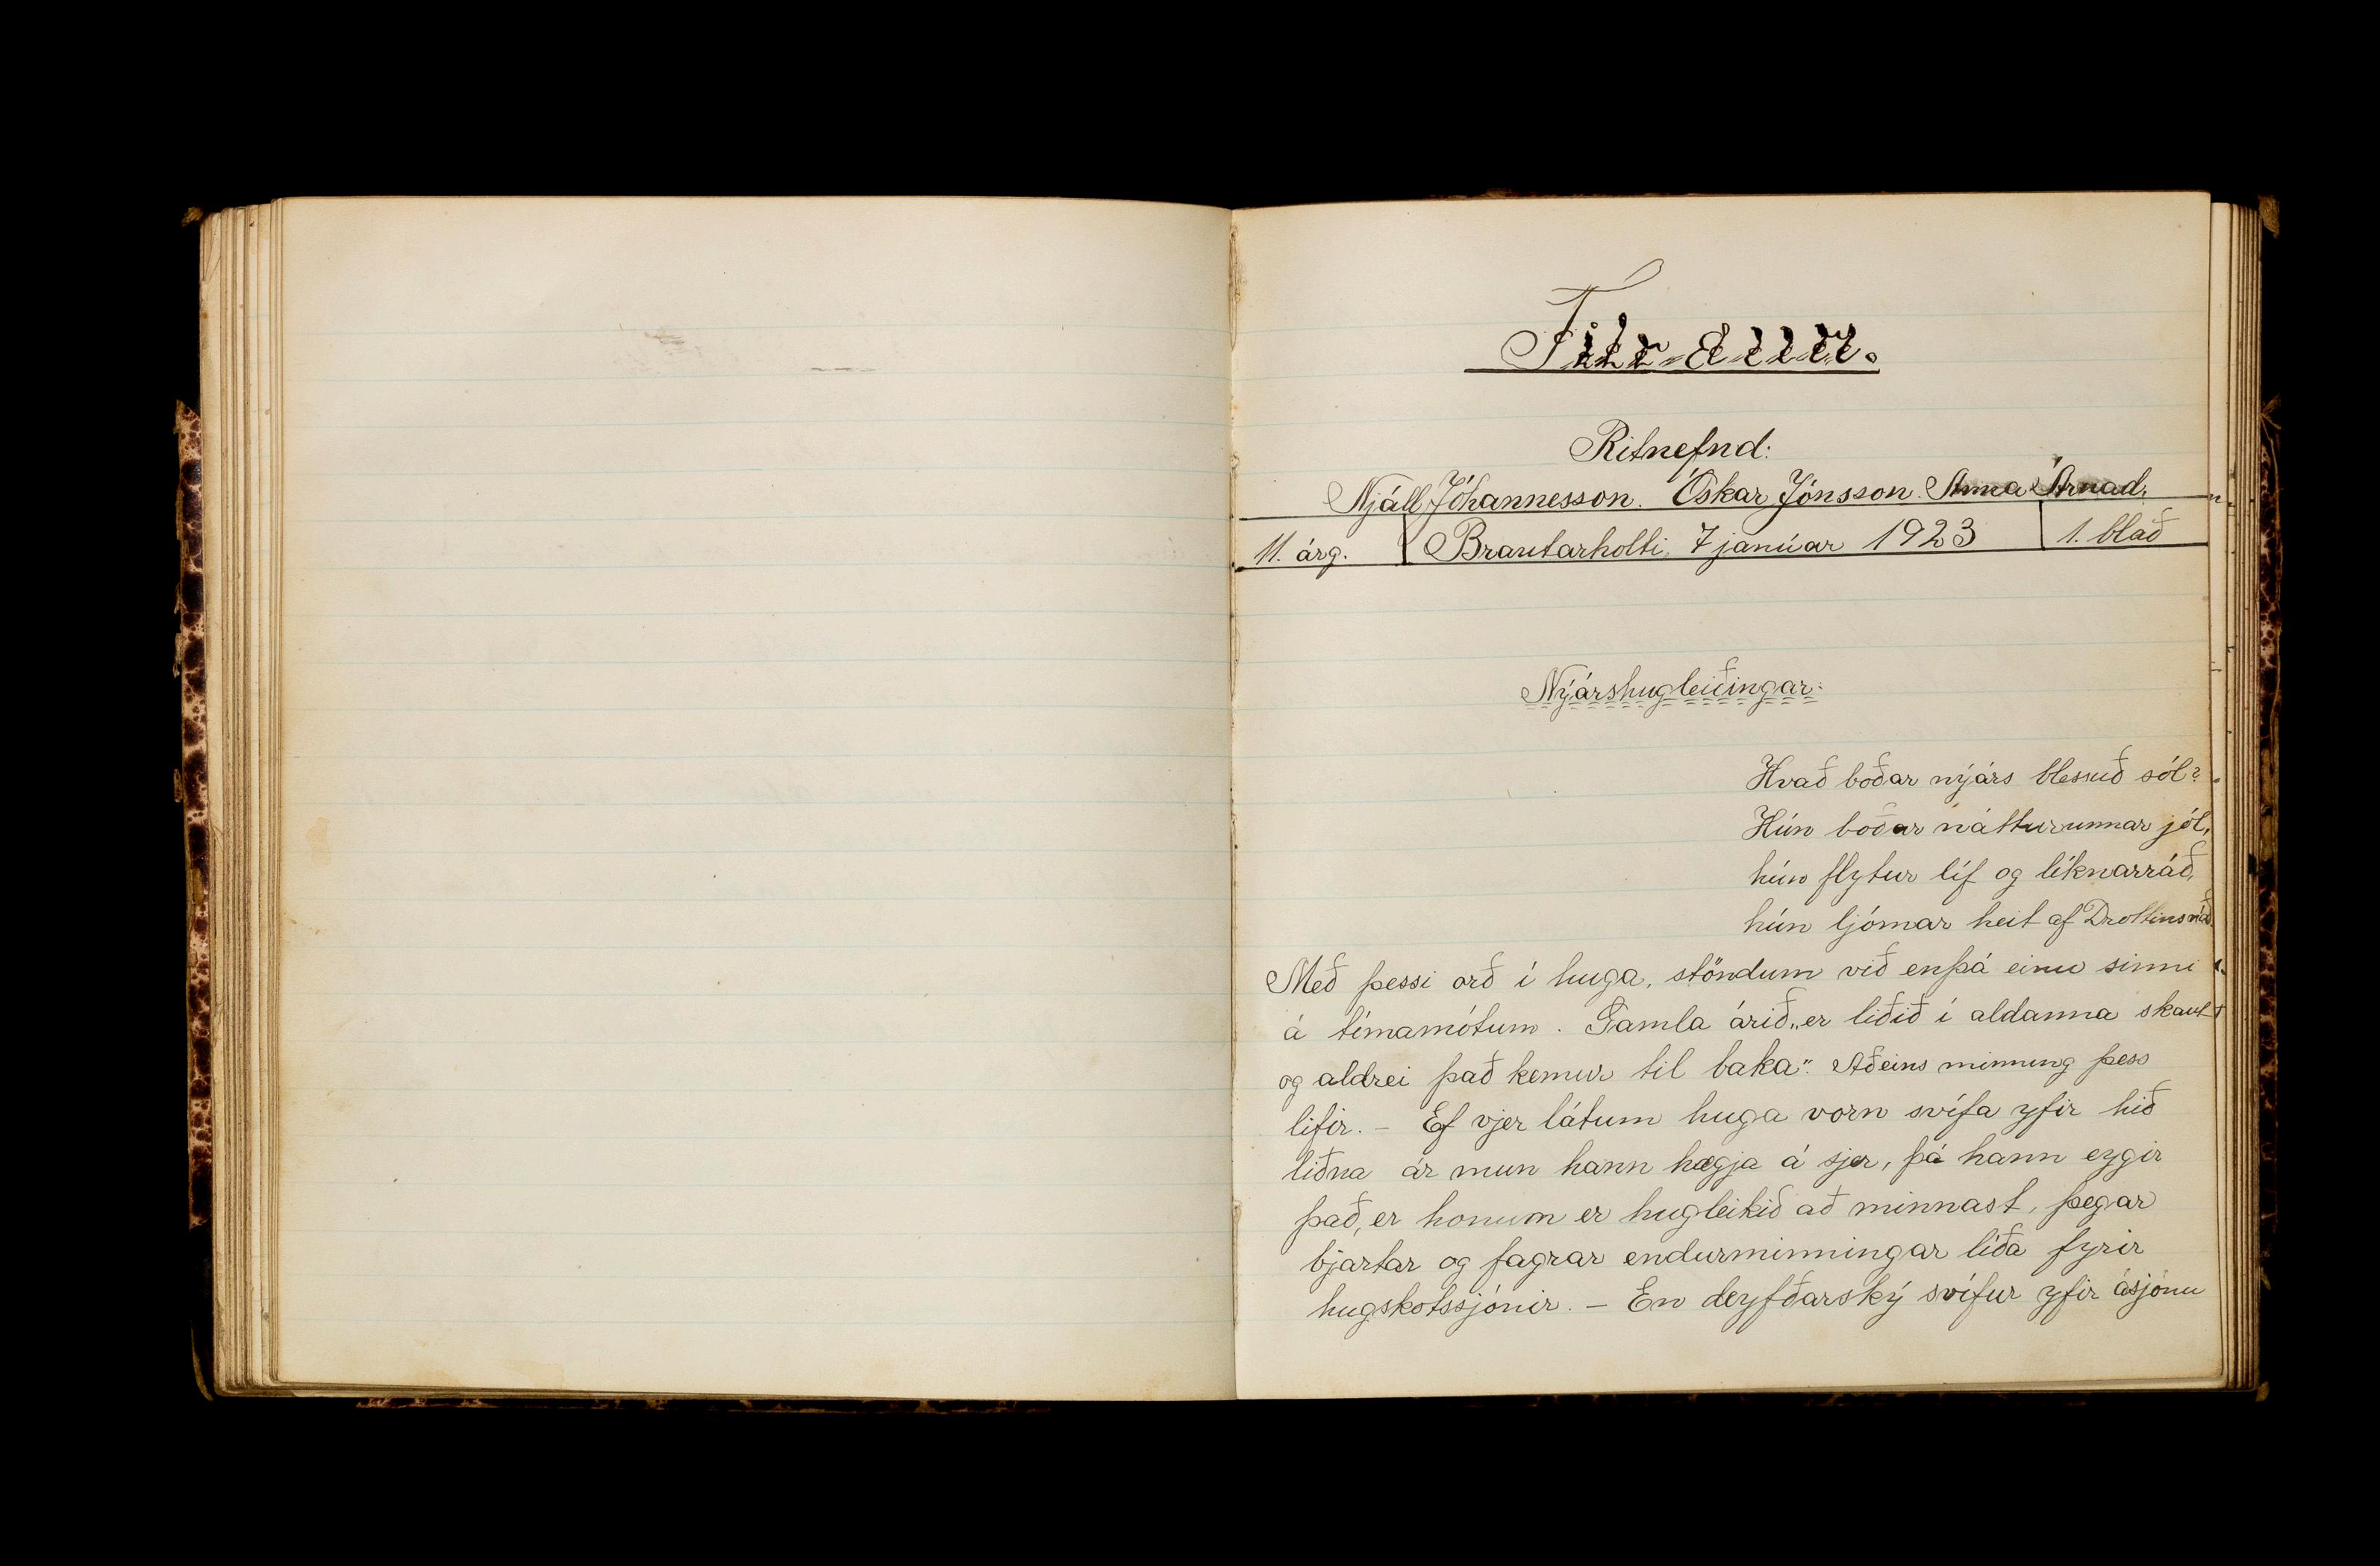 Ritnefnd:
Njáll Jóhannesson. Óskar Jónsson. Anna Árnad.
11. árg. Brautarholti, 7 janúar 1923 1. blað
Nýárshugleiðingar:
Hvað boðar nýárs blesuð sól?
Hún boðar nátturunnar jól,
hún flytur líf og líknarráð,
hún ljómar heit af Drottins náð.
Með þessi orð í huga, stöndum við enþá einu sinni
á tímamótum. Gamla árið „er liðið í aldanna skaut
og aldrei það kemur til baka". Aðeins minning þess
lifir. - Ef vjer látum huga vorn svífa yfir hið
liðna ár mun hann hægja á sjer, þá hann eygir
það, er honum er hugleikið að minnast, þegar
bjartar og fagrar endurminningar líða fyrir
hugskotssjónir. - En deyfðarský svífur yfir ásjónu